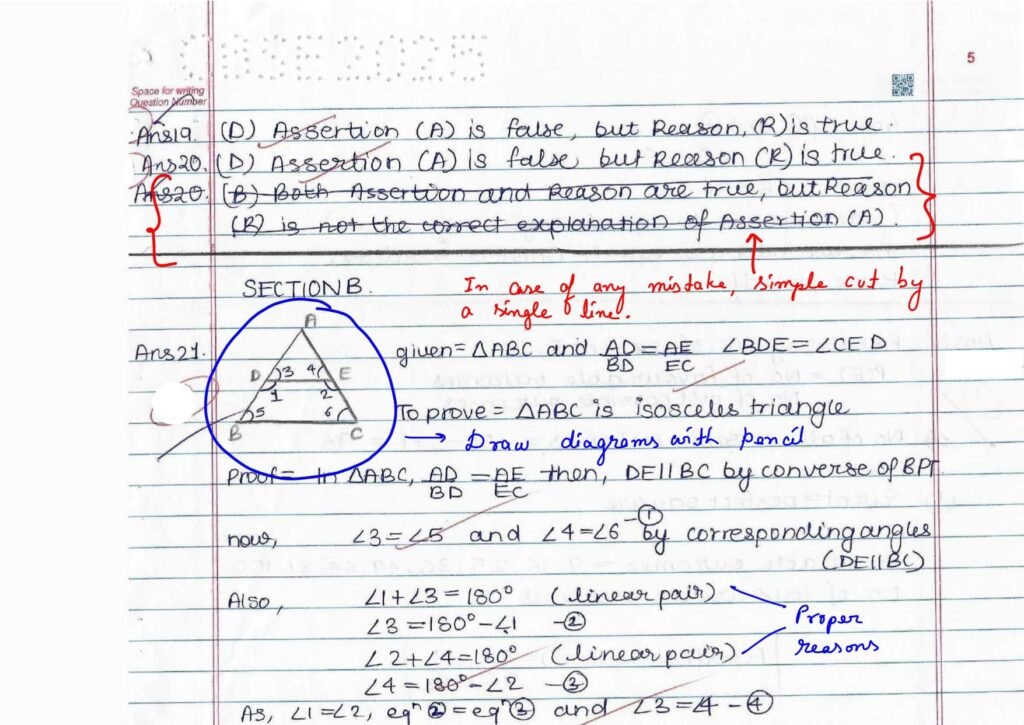 CBSE2025
5
Space for writing
Question Number
Ans19. (D) Assertion (A) is false, but Reason, (R) is true.
Ans20. (D) Assertion (A) is false but Reason (R) is true.
Ans20. (B) Both Assertion and Reason are true, but Reason
(R) is not the correct explanation of Assertion (A).
SECTION B.
In case of any mistake, simple cut by
a single line.
A
Ans21.
given = △ABC and AD/BD = AE/EC ∠BDE = ∠CED
D 3 4 E
1 2
5 6
B C
To prove = △ABC is isosceles triangle
→ Draw diagrams with pencil
Proof = In △ABC, AD/BD = AE/EC then, DE||BC by converse of BPT
now, ∠3 = ∠5 and ∠4 = ∠6 -① by corresponding angles
(DE||BC)
Also, ∠1 + ∠3 = 180° (linear pair)
∠3 = 180° - ∠1 -②
Proper
reasons
∠2 + ∠4 = 180° (linear pair)
∠4 = 180° - ∠2 -③
As, ∠1 = ∠2, eqⁿ ② = eqⁿ ③ and ∠3 = ∠4 - ④